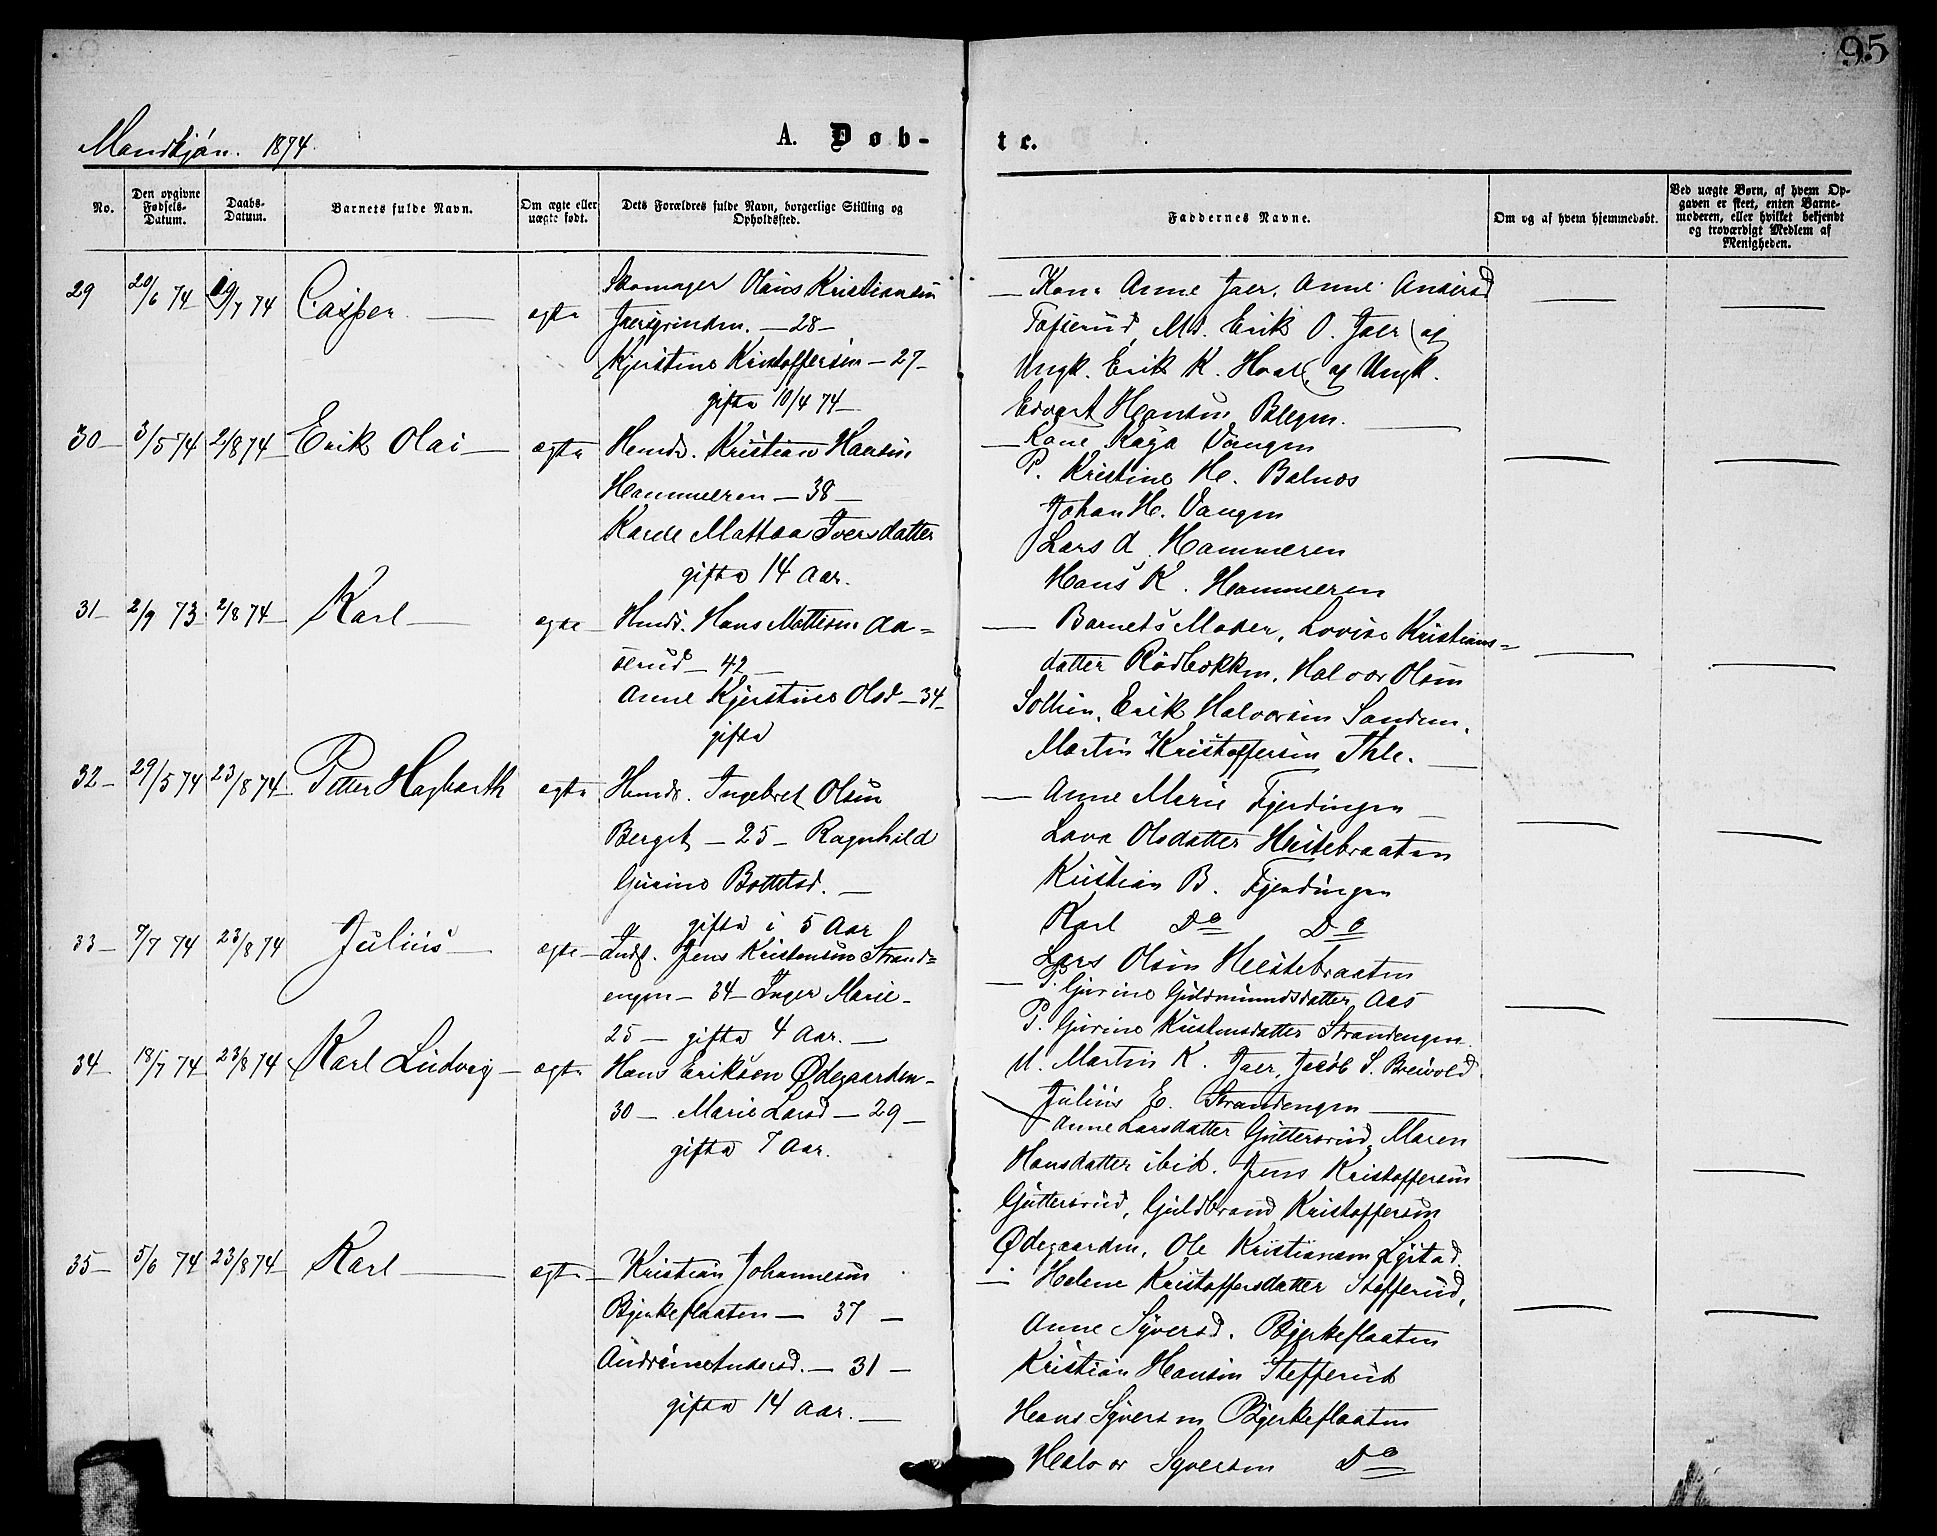 95
Mandkjön. 1874.
A. Døb-
te.
No.
Den opgivne Fødsels-Datum.
Daabs-Datum.
Barnets fulde Navn.
Om ægte eller uægte født.
Dets Forældres fulde Navn, borgerlige Stilling og Opholdssted.
Faddernes Navne.
Om og af hvem hjemmedøbt.
Ved uægte Børn, af hvem Opgaven er skeet, enten Barnemoderen, eller hvilket bekjendt og troværdigt Medlem af Menigheden.
29 20/6 74 19/7 74 Casper — ægte
Skomager Olaus Kristiansen
Jaersgrinden. — 28 —
Kjerstine Kristoffersen — 27 —
gifte 10/4 74 —
— Kone Anne Jaer, Anne Andersd
Tofserud, M. Erik O. Jaer, og
Ungk. Erik K. Hval, og Ungk.
Edvart Hansen Blegen. —
30 — 3/5 74 2/8 74 — Erik Olai — ægte
Husmd. Kristian Hansen
Hammeren — 38 —
Karde Mattea Iversdatter
gifte 14 Aar.
— Kone Kaja Vangen
P. Kristine H. Balnos
Johan H. Vangen
Lars A. Hammeren
Hans K. Hammeren
31 — 2/9 73 2/8 74 — Karl — ægte —
Husmd. Hans Mattisen Aa=
serud — 42 —
Anne Kjerstine Olsd — 34 —
gifte
— Barnets Moder, Lovise Kristians=
datter Rödbekken, Halvor Olsen
Solhien, Erik Halvorsen Sanden,
Martin Kristoffersen Thle. —
32 — 29/5 74 23/8 74 — Petter Hagbarth ægte
Husmd. Ingebret Olsen
Berget — 25 — Ragnhild
Gurine Bottelsd. —
gifte i 5 Aar
— Anne Marie Fjerdingen —
Lava Olsdatter Hestebraaten
Kristian B. Fjerdingen
Karl Do Do
Lars Olsen Hestebraaten
33 — 9/7 74 23/8 74 Julius — ægte —
Inds. Jens Kristensen Strand=
engen — 34 — Inger Marie —
25 — gifte 4 Aar. —
— P. Gurine Guldmundsdatter Aas
P. Gurine Kristensdatter Strandengen.
U. Martin K. Jaer, Jacob S. Breivold
Julius E. Strandengen —
34 — 18/7 74 23/8 74 Karl Ludvig — ægte
Hans Eriksen Ødegaarden —
30 — Marie Larsd — 29 —
gifte 7 Aar.
Anne Larsdatter Guttersrud, Maren
Hansdatter ibid. Jens Kristoffersen
Guttersrud, Guldbrand Kristoffersen
Ødegaarden, Ole Kristiansen Lystad.
35 — 5/6 74 23/8 74 — Karl — ægte —
Kristian Johannesen
Bjerkeflaaten — 37 —
Andrine Andersd. — 31 —
gifte 14 Aar. —
— Helene Kristoffersdatter Stefferud,
Anne Syversd. Bjerkeflaaten
Kristian Hansen Stefferud
Hans Syversen Bjerkeflaaten
Halvor Syversen Do